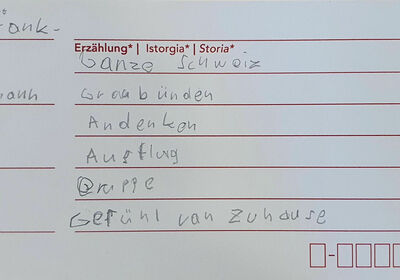 rank-
Erzählung* | Istorgia* | Storia*
Ganze Schweiz
Graabünden
Andenken
Ausflug
Gruppe
Gefühl van Zuhause